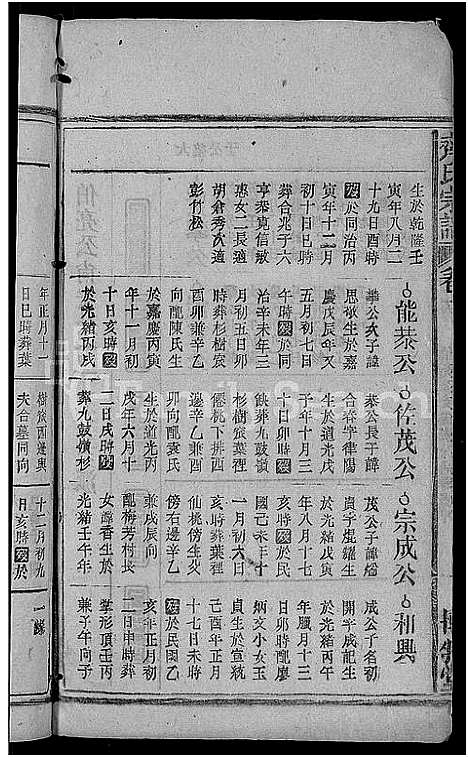 齊氏宗譜
卷
生於乾隆壬
寅年八月二
十九日酉時
歿於同治丙
寅年十二月
初十日巳時
葬合兆子六
亨恭寬信敏
惠女二長適
胡倉秀次適
彭竹松
能恭公
擧公次子諱
思敬生於嘉
慶戊辰年又
五月初七日
午時歿於同
治辛未年三
月初五日卯
時葬杉樹窊
酉卯兼辛乙
向配陳氏生
於嘉慶丙寅
年十一月初
十日亥時歿
於光緒丙戌
年正月十一
日巳時葬葉
佐茂公
恭公長子諱
合春字律陽
生於道光戊
子年十月三
十日卯時歿
葬九鼓嶺
杉樹窊葉裡
僊桃下排酉
邊辛乙兼酉
卯向配袁氏
生於道光丙
戌年六月十
二日戌時歿
葬九鼓嶺杉
樹窊西邊與
夫合墓同向
宗成公
茂公子諱
貴字焜耀生
於光緒戊寅
年八月十七
亥時歿於民
國己未十
一月初六日
亥時葬葉裡
仙桃傍生
傍右邊辛乙
兼戌辰向
配梅芳村長
女馥香生於
光緒壬午年
十二月初九
日亥時歿於
和興
成公子名初
開字成記生
於光緒丙午
年臘月十三
日卯時配廖
炳文小女玉
貞生於宣統
己酉年正月
十七日未時
歿於民國乙
亥年正月初
二日申時葬
掌形頂壬丙
兼子午向子
一